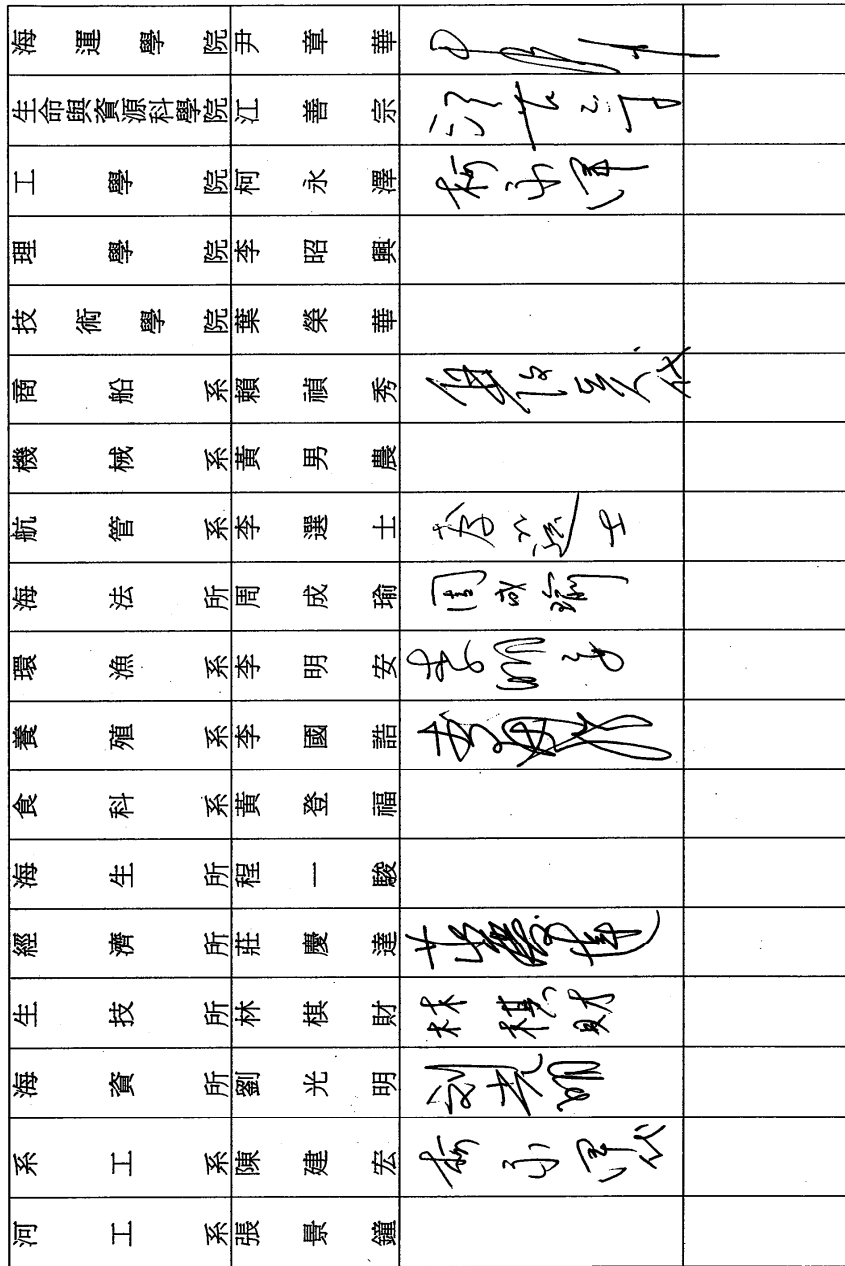 海運學院 尹章華
生命與資源科學院 江善宗 江善宗
工學院 柯永澤 柯永澤
理學院 李昭興
技術學院 葉榮華
商船系 賴禎秀 代
機械系 黃男農
航管系 李選士 李選士
海法所 周成瑜 周成瑜
環漁系 李明安 李明安
養殖系 李國誥
食科系 黃登福
海生所 程一駿
經濟所 莊慶達 莊慶達
生技所 林棋財 林棋財
海資所 劉光明 刘光明
系工系 陳建宏 柯永澤代
河工系 張景鐘